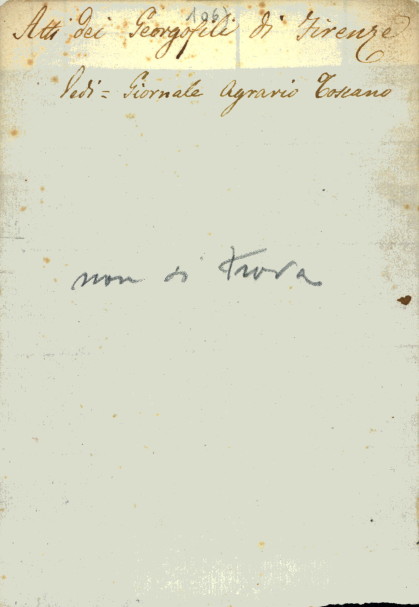 196)
Atti dei Georgofili di Firenze
Vedi = Giornale Agrario Toscano
non si trova